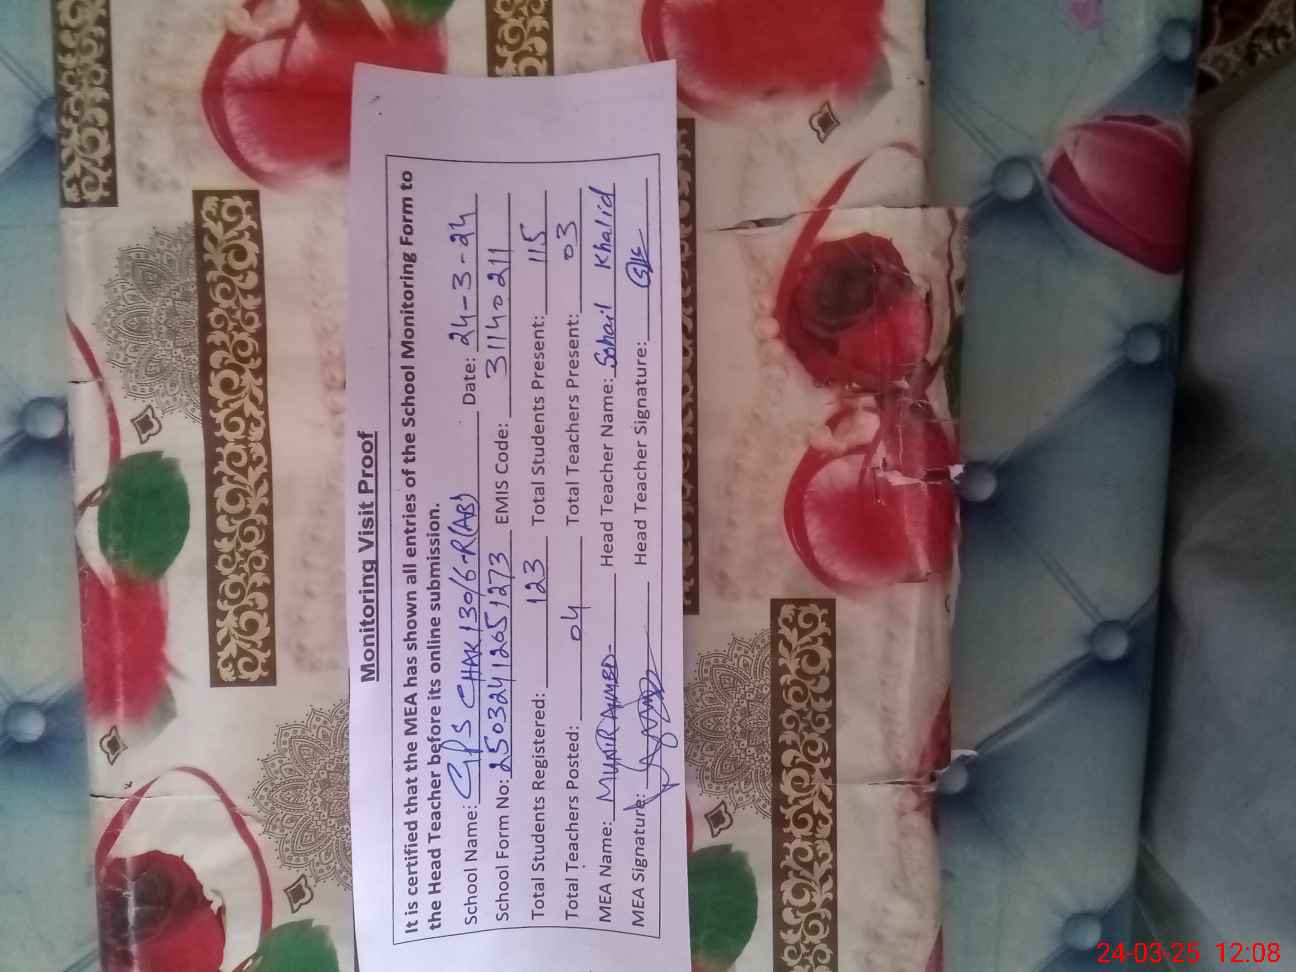 Monitoring Visit Proof
It is certified that the MEA has shown all entries of the School Monitoring Form to
the Head Teacher before its online submission.
School Name: GPS CHAK 130/6-R(AB) Date: 24-3-24
School Form No: 25032412651273 EMIS Code: 31140211
Total Students Registered: 123 Total Students Present: 115
Total Teachers Posted: 04 Total Teachers Present: 03
MEA Name: MUNIR AHMED Head Teacher Name: Sohail Khalid
MEA Signature: Head Teacher Signature:
24-03-25 12:08